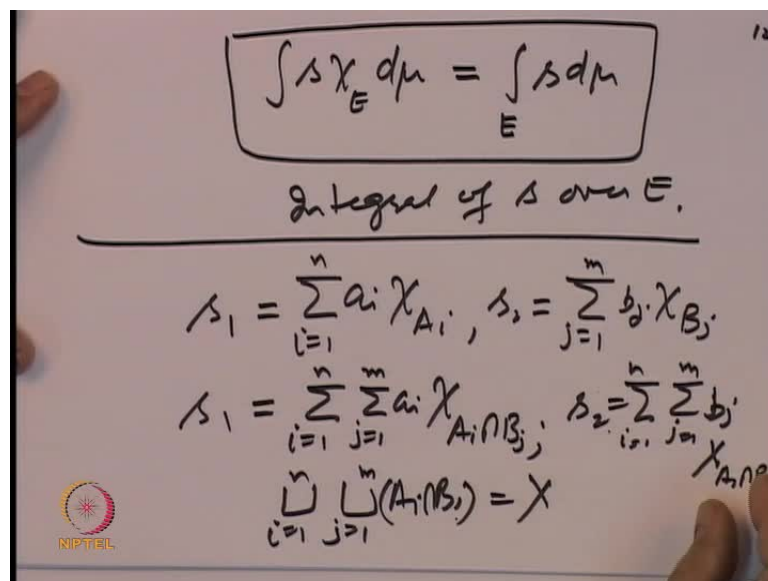 12
∫ s χ_E dμ = ∫_E s dμ
Integral of s over E.
s₁ = ∑_{i=1}^{n} aᵢ χ_{Aᵢ}, s₂ = ∑_{j=1}^{m} bⱼ χ_{Bⱼ}
s₁ = ∑_{i=1}^{n} ∑_{j=1}^{m} aᵢ χ_{Aᵢ∩Bⱼ}, s₂ = ∑_{i=1}^{n} ∑_{j=1}^{m} bⱼ
χ_{Aᵢ∩B
⊔_{i=1}^{n} ⊔_{j=1}^{m} (Aᵢ∩Bⱼ) = X
NPTEL